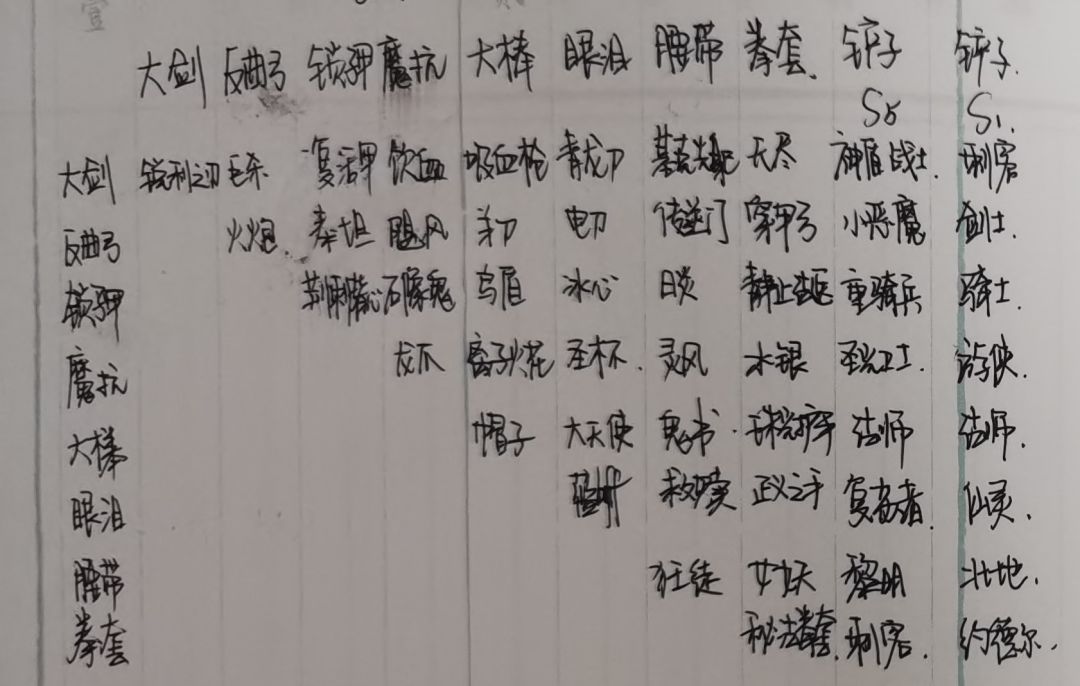 大剑 反曲弓 锁甲 魔抗 大棒 眼泪 腰带 拳套. 铲子 铲子.
S5 S1.
大剑 锐利之刃 饮血 吸血枪 青龙刀 天尽 神盾战士. 刺客
反曲弓 火炮. 泰坦 飓风 羊刀 电刀 传送门 穿甲弓 小恶魔 剑士.
锁甲 荆棘 石像鬼 鸟盾 冰心 日炎 静止 重骑兵 骑士.
魔抗 龙爪 离子火花 圣杯. 灵风 水银 圣光卫士. 游侠.
大棒 帽子 大天使 鬼书. 法师 法师.
眼泪 救赎 正义之手 复苏者. 仙灵.
腰带 狂徒 女妖 黎明 北地.
拳套 秘法拳套. 刺客. 约德尔.